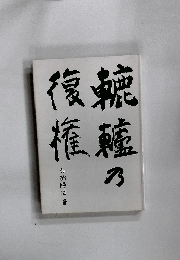 轆轤乃
復権